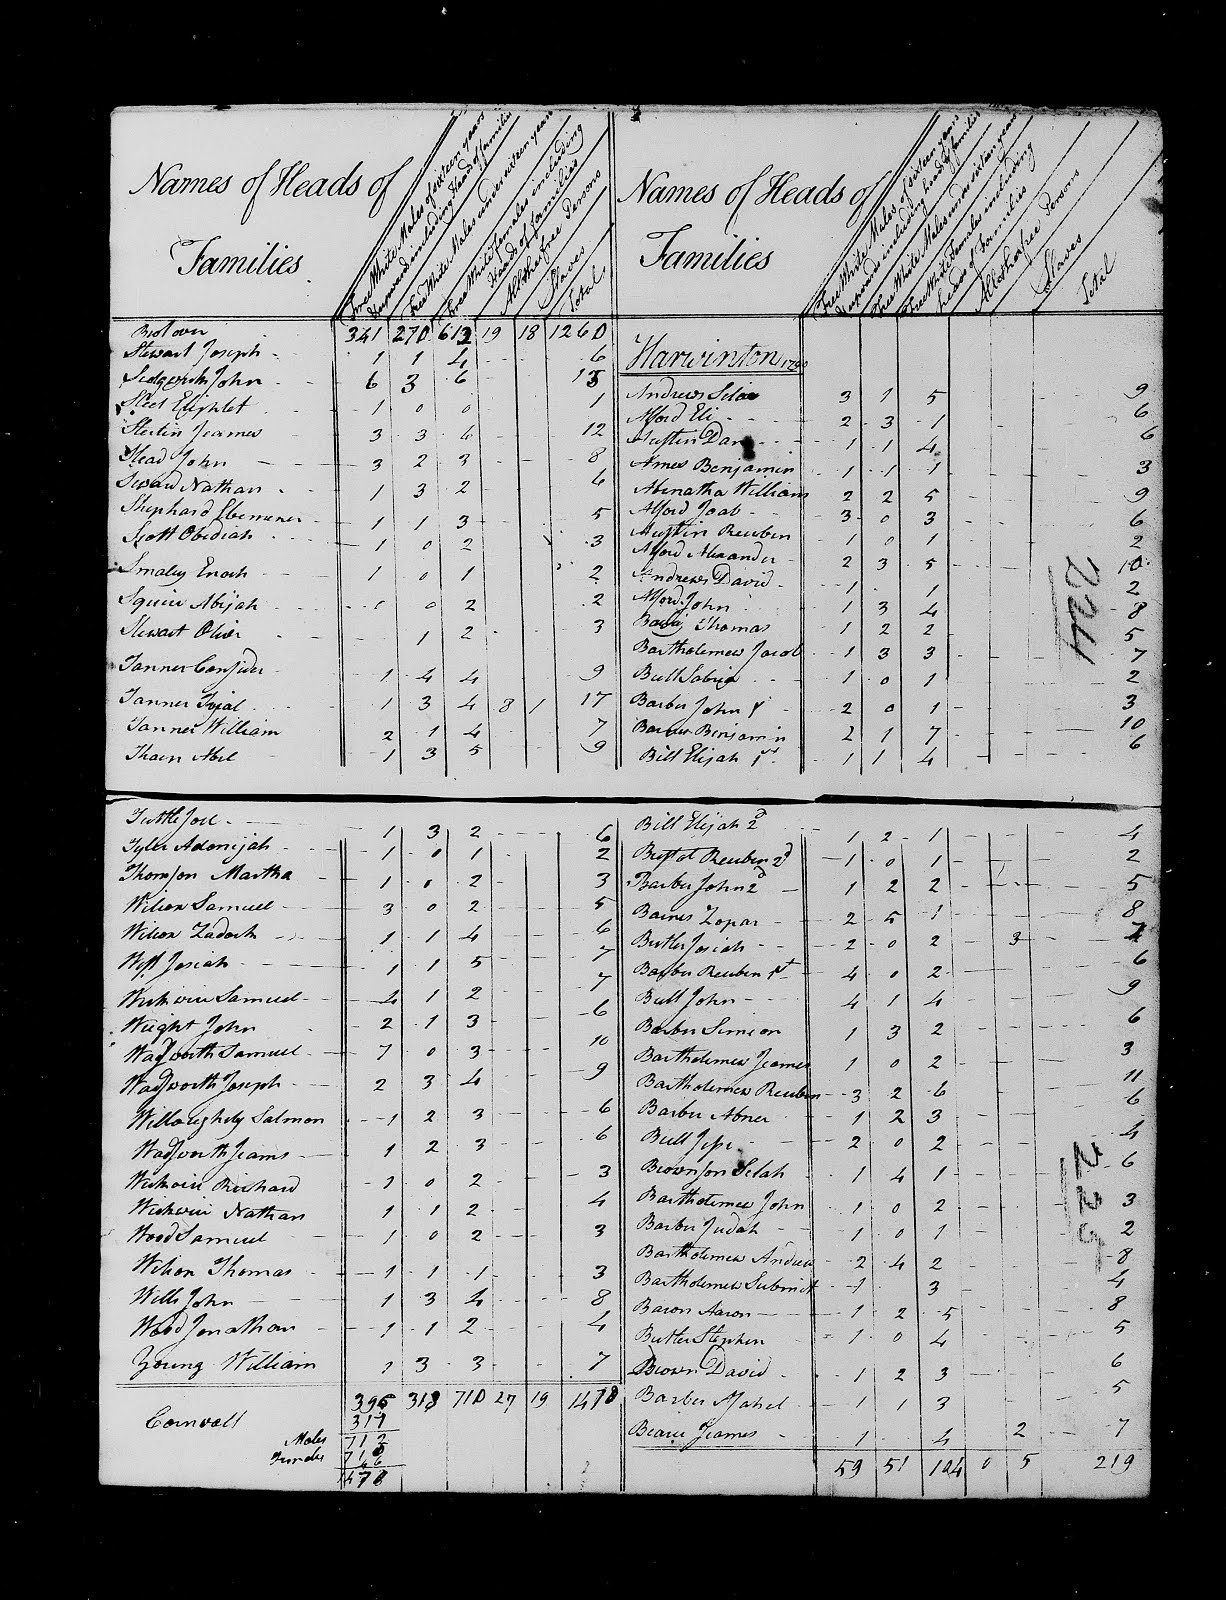 Names of Heads of
Families
Free White Males of sixteen years
& upward including Head of families
Free White Males under sixteen years
Free White Females including
Heads of families
All other free Persons
Slaves
Total
Brot over 341 270 612 19 18 1260
Stewart Joseph 1 1 4 6
Sedgwick John 6 3 6 15
Steel Eliphlet 1 0 0 1
Sterlin Jeames 3 3 4 12
Stead John 3 2 3 8
Seward Nathan 1 3 2 6
Shephard Ebenener 1 1 3 5
Scott Obediah 1 0 2 3
Smaley Enoch 1 0 1 2
Squire Abijah 0 0 2 2
Stewart Oliver 1 2 3
Tanner Consider 1 4 4 9
Tanner Trial 1 3 4 8 1 17
Tanner William 2 1 4 7
Thaen Abel 1 3 5 9
Tuttle Joel 1 3 2 6
Tyler Adonijah 1 0 1 2
Thomson Martha 1 0 2 3
Wilcox Samuel 3 0 2 5
Wilcox Zadock 1 1 4 6
West Josiah 1 1 5 7
Wickwire Samuel 4 1 2 7
Wright John 2 1 3 6
Wadsworth Samuel 7 0 3 10
Wadsworth Joseph 2 3 4 9
Willoughby Salmon 1 2 3 6
Wadsworth Jeams 1 2 3 6
Wickwire Richard 1 0 2 3
Wickwire Nathan 1 1 2 4
Wood Samuel 1 0 2 3
Wilson Thomas 1 1 1 3
Wills John 1 3 4 8
Wood Jonathan 1 1 2 4
Young William 1 3 3 7
395 318 710 27 19 1470
Cornwall 317
Males 712
Females 710
46
1470
Names of Heads of
Families
Free White Males of sixteen years
& upward including head of families
Free White Males under sixteen years
Free White Females including
heads of Families
All other free Persons
Slaves
Total
Harwinton 1790
Andrews Selae 3 1 5 9
Alford Eli 2 3 1 6
Austin Dan 1 1 4 6
Ames Benjamin 1 1 1 3
Abernatha William 2 2 5 9
Alford Joab 3 0 3 6
Austin Reuben 1 0 1 2
Alford Alexander 2 3 5 10
Andrews David 1 1 2
Alford John 1 3 4 8
Thomas 1 2 2 5
Bartholemew Jacob 1 3 3 7
Bull Sabria 1 0 1 2
Barber John 2 0 1 3
Benjamin 2 1 7 10
Bill Elijah 1st 1 1 4 6
Bill Elijah 2d 1 2 1 4
Bristol Reuben 2d 1 0 1 2
Barber John 2d 1 2 2 5
Barnes Zopar 2 5 1 8
Butler Josiah 2 0 2 3 7
Barber Reuben 1st 4 0 2 6
Bull John 4 1 4 9
Barber Simeon 1 3 2 6
Bartholemew Jeames 1 0 2 3
Bartholemew Reuben 3 2 6 11
Barber Abner 1 2 3 6
Bull Jesse 2 0 2 4
Brownson Selah 1 4 1 6
Bartholemew John 1 0 2 3
Barber Judah 1 0 1 2
Bartholemew Andrew 2 4 2 8
Bartholemew Submit 1 3 4
Bacon Aaron 1 2 5 8
Butler Stephen 1 0 4 5
Brown David 1 2 3 6
Barber Asahel 1 1 3 5
Brace Jeames 1 4 2 7
59 51 104 0 5 219
224
225